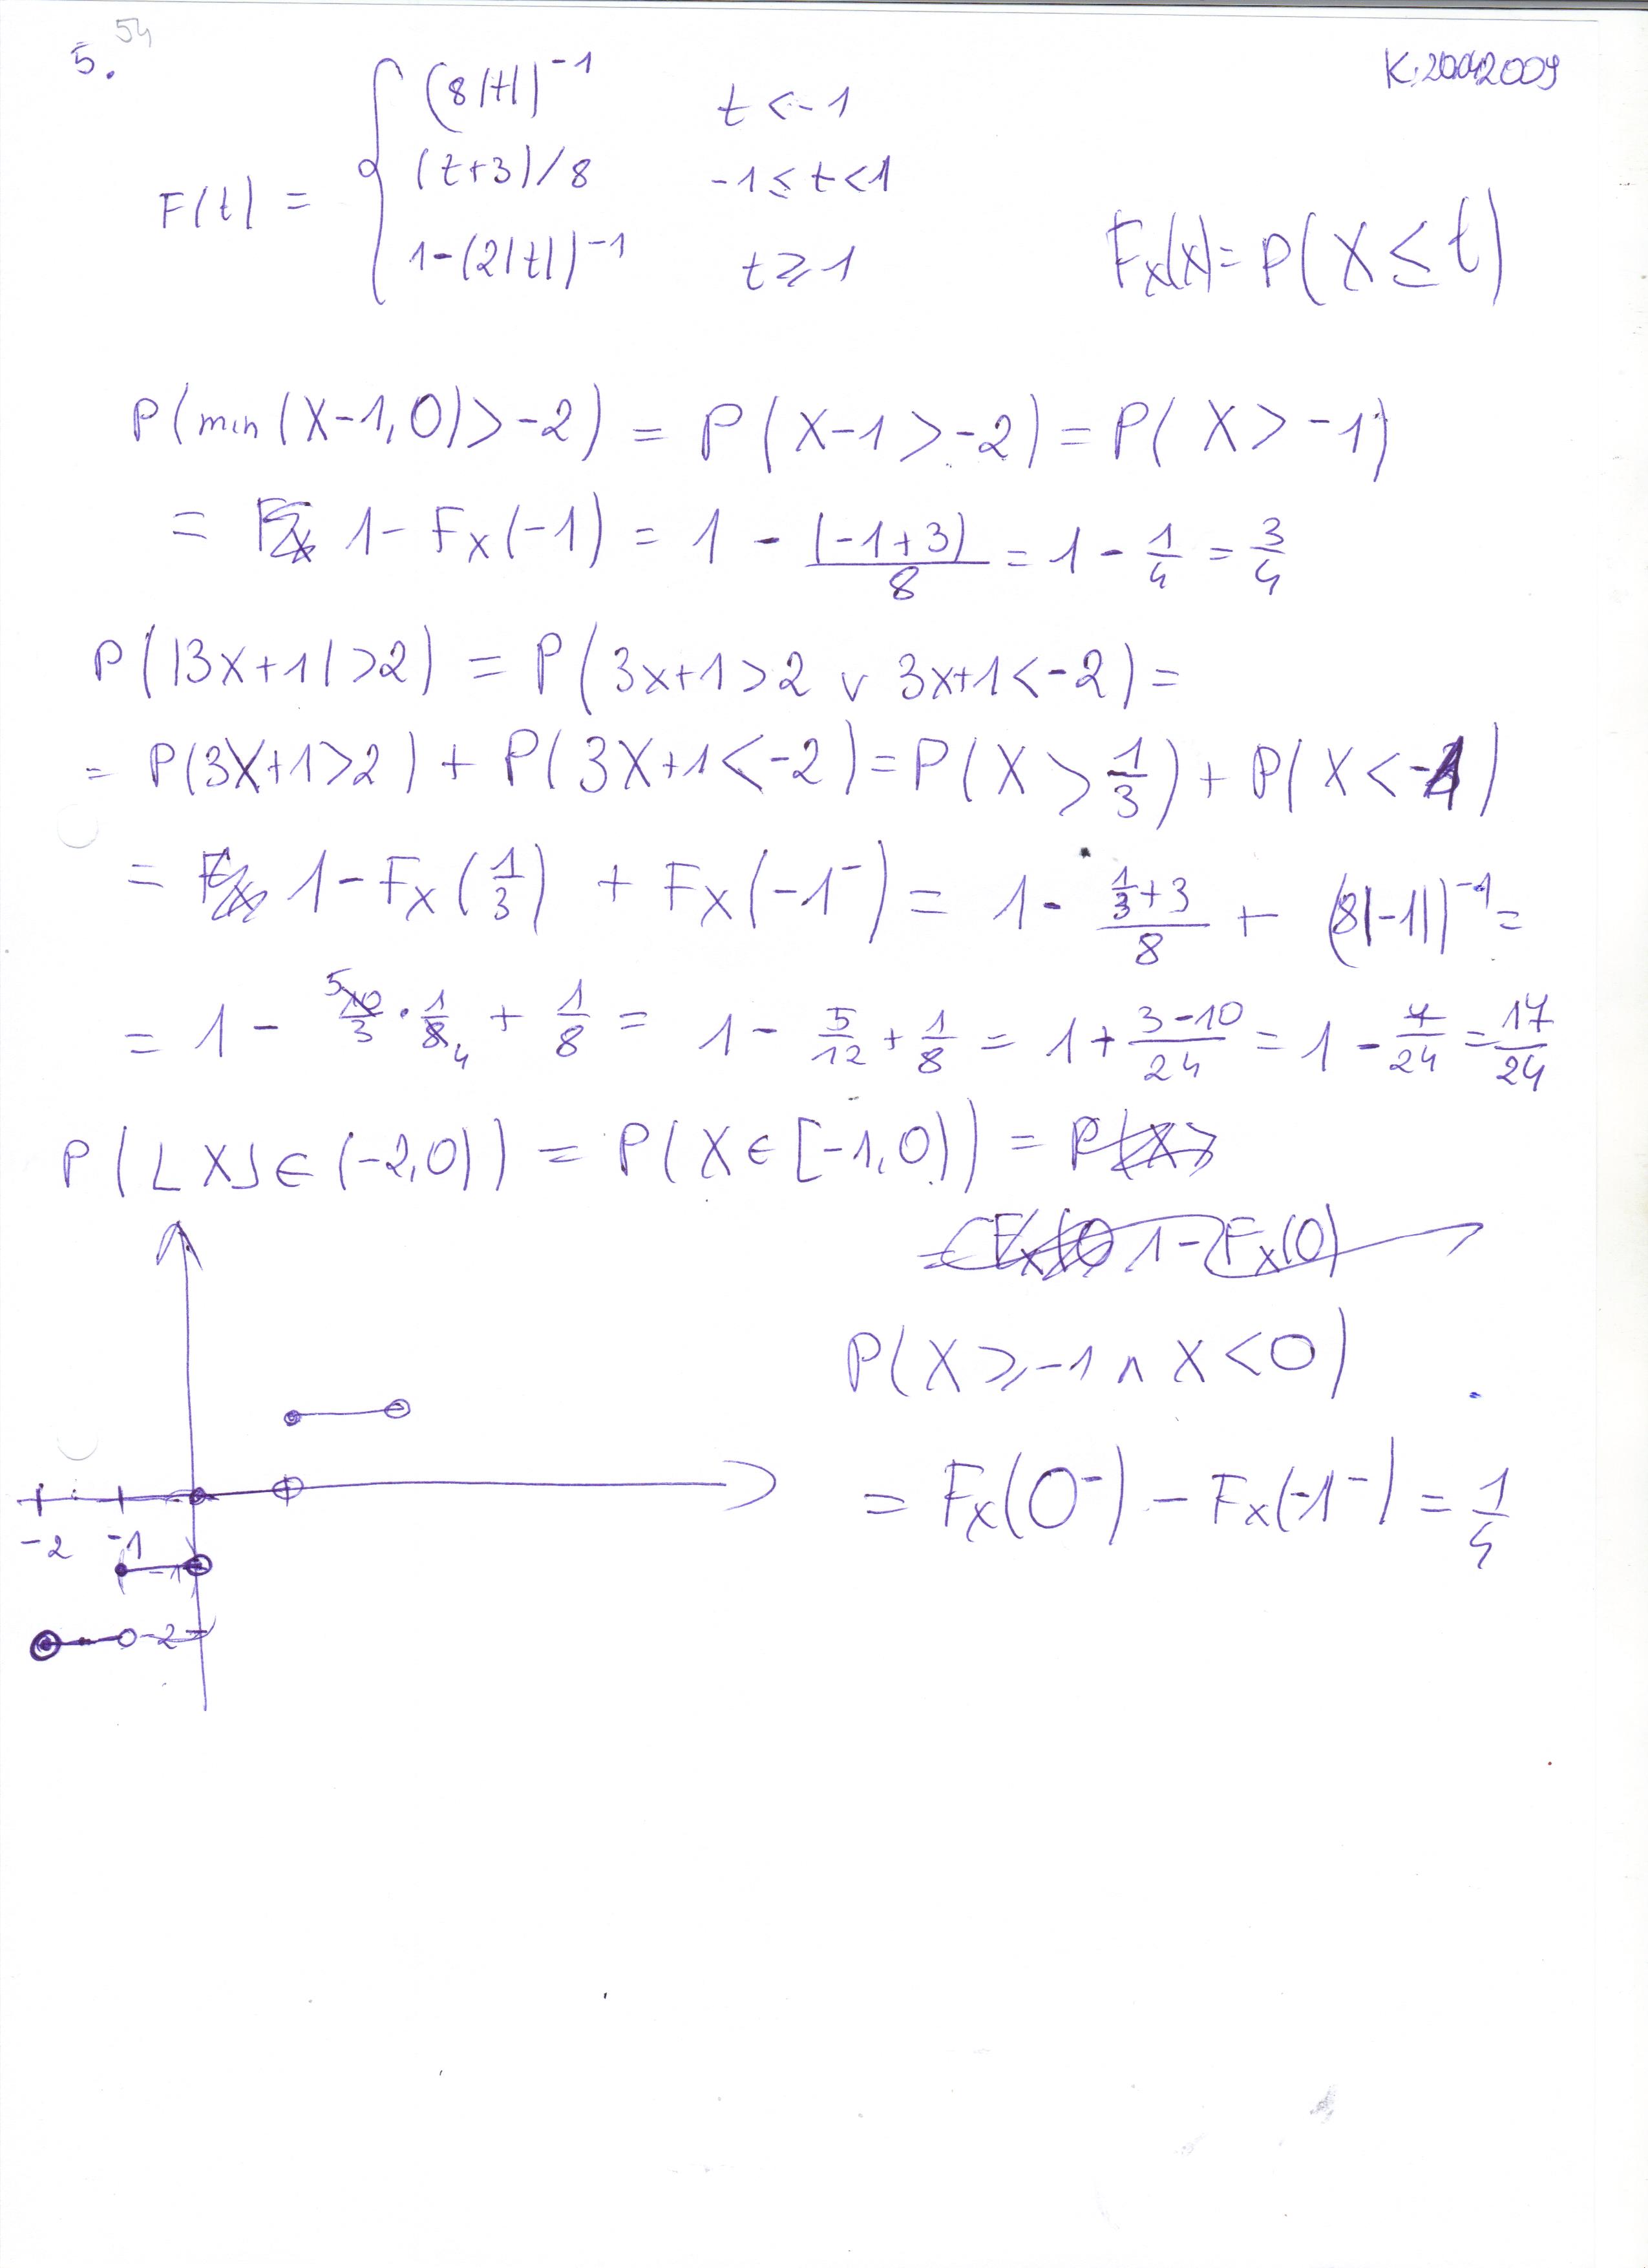 54
5.
K.20042009
F(t) = { (8|t|)^{-1}   t < -1
(t+3)/8   -1 ≤ t < 1
1-(2|t|)^{-1}   t ≥ 1
F_X(x) = P(X ≤ t)
P(min(X-1,0) > -2) = P(X-1 > -2) = P(X > -1)
= 1 - F_X(-1) = 1 - (-1+3)/8 = 1 - 1/4 = 3/4
P(|3x+1| > 2) = P(3x+1 > 2 ∨ 3x+1 < -2) =
= P(3X+1 > 2) + P(3X+1 < -2) = P(X > 1/3) + P(X < -1)
= 1 - F_X(1/3) + F_X(-1^-) = 1 - (1/3+3)/8 + (8|-1|)^{-1} =
= 1 - 5 10/3 · 1/8 4 + 1/8 = 1 - 5/12 + 1/8 = 1 + (3-10)/24 = 1 - 7/24 = 17/24
P(⌊X⌋ ∈ (-2,0)) = P(X ∈ [-1,0)) = P(X>
1 - F_X(0)
P(X ≥ -1 ∧ X < 0)
= F_X(0^-) - F_X(-1^-) = 1/4
-2 -1
-1
-2